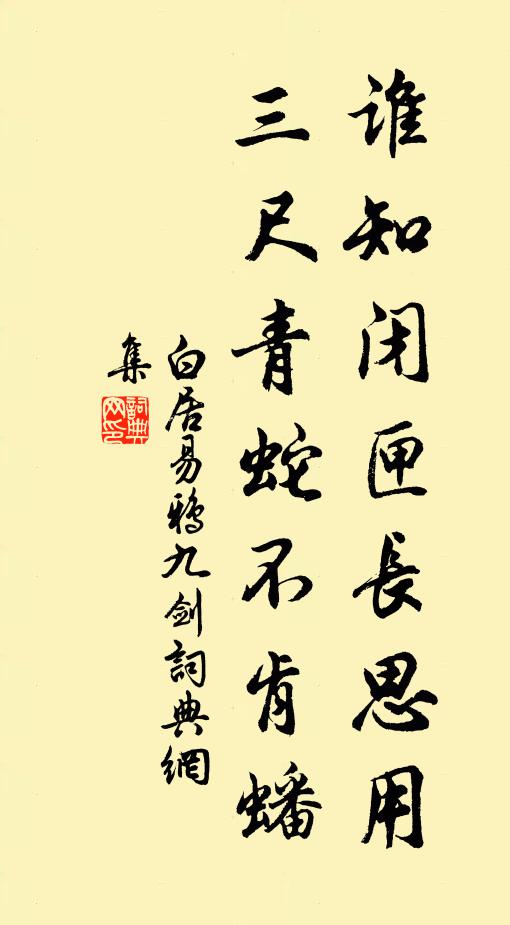 谁知闭匣長思用
三尺青蛇不肯蟠
白居易鴉九剑詞典網
集
詞典網印